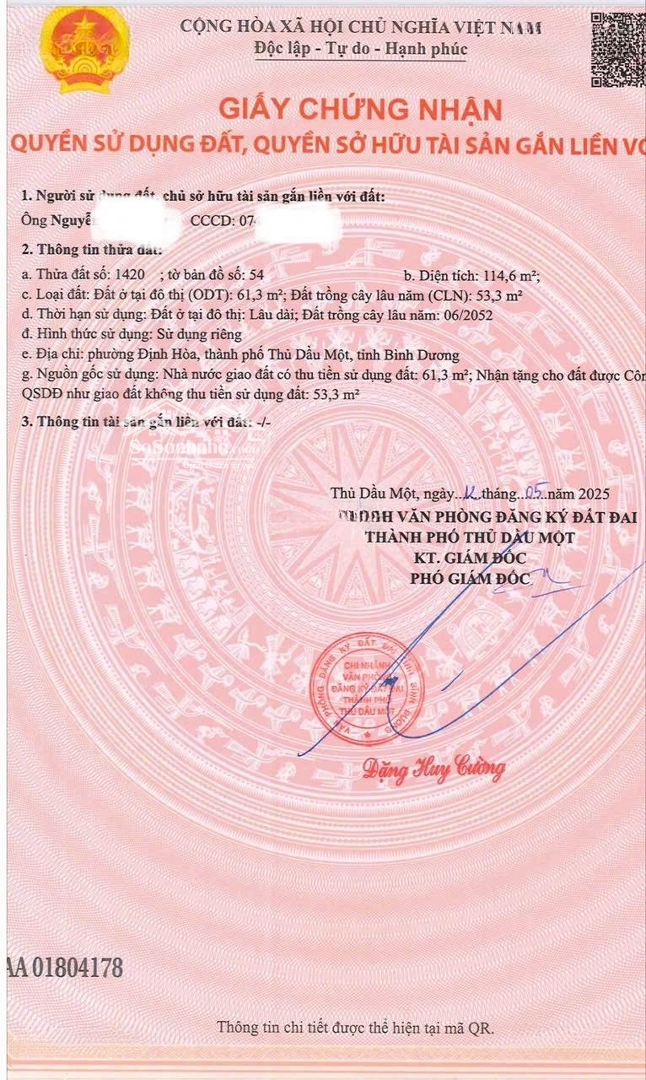 CỘNG HÒA XÃ HỘI CHỦ NGHĨA VIỆT NAM
Độc lập - Tự do - Hạnh phúc
GIẤY CHỨNG NHẬN
QUYỀN SỬ DỤNG ĐẤT, QUYỀN SỞ HỮU TÀI SẢN GẮN LIỀN
1. Người sử dụng đất, chủ sở hữu tài sản gắn liền với đất:
Ông Nguyễ CCCD: 07
2. Thông tin thửa đất:
a. Thửa đất số: 1420 ; tờ bản đồ số: 54 b. Diện tích: 114,6 m²;
c. Loại đất: Đất ở tại đô thị (ODT): 61,3 m²; Đất trồng cây lâu năm (CLN): 53,3 m²
d. Thời hạn sử dụng: Đất ở tại đô thị: Lâu dài; Đất trồng cây lâu năm: 06/2052
đ. Hình thức sử dụng: Sử dụng riêng
e. Địa chỉ: phường Định Hòa, thành phố Thủ Dầu Một, tỉnh Bình Dương
g. Nguồn gốc sử dụng: Nhà nước giao đất có thu tiền sử dụng đất: 61,3 m²; Nhận tặng cho đất được Côn
QSDĐ như giao đất không thu tiền sử dụng đất: 53,3 m²
3. Thông tin tài sản gắn liền với đất: -/-
SoSanhnha.com
Thủ Dầu Một, ngày..12.tháng..05..năm 2025
VĂN PHÒNG ĐĂNG KÝ ĐẤT ĐAI
THÀNH PHỐ THỦ DẦU MỘT
KT. GIÁM ĐỐC
PHÓ GIÁM ĐỐC
VĂN PHÒNG ĐĂNG KÝ ĐẤT ĐAI TỈNH BÌNH DƯƠNG
CHI NHÁNH
VĂN PHÒNG
ĐĂNG KÝ ĐẤT ĐAI
THÀNH PHỐ
THỦ DẦU MỘT
Đặng Huy Cường
AA 01804178
Thông tin chi tiết được thể hiện tại mã QR.